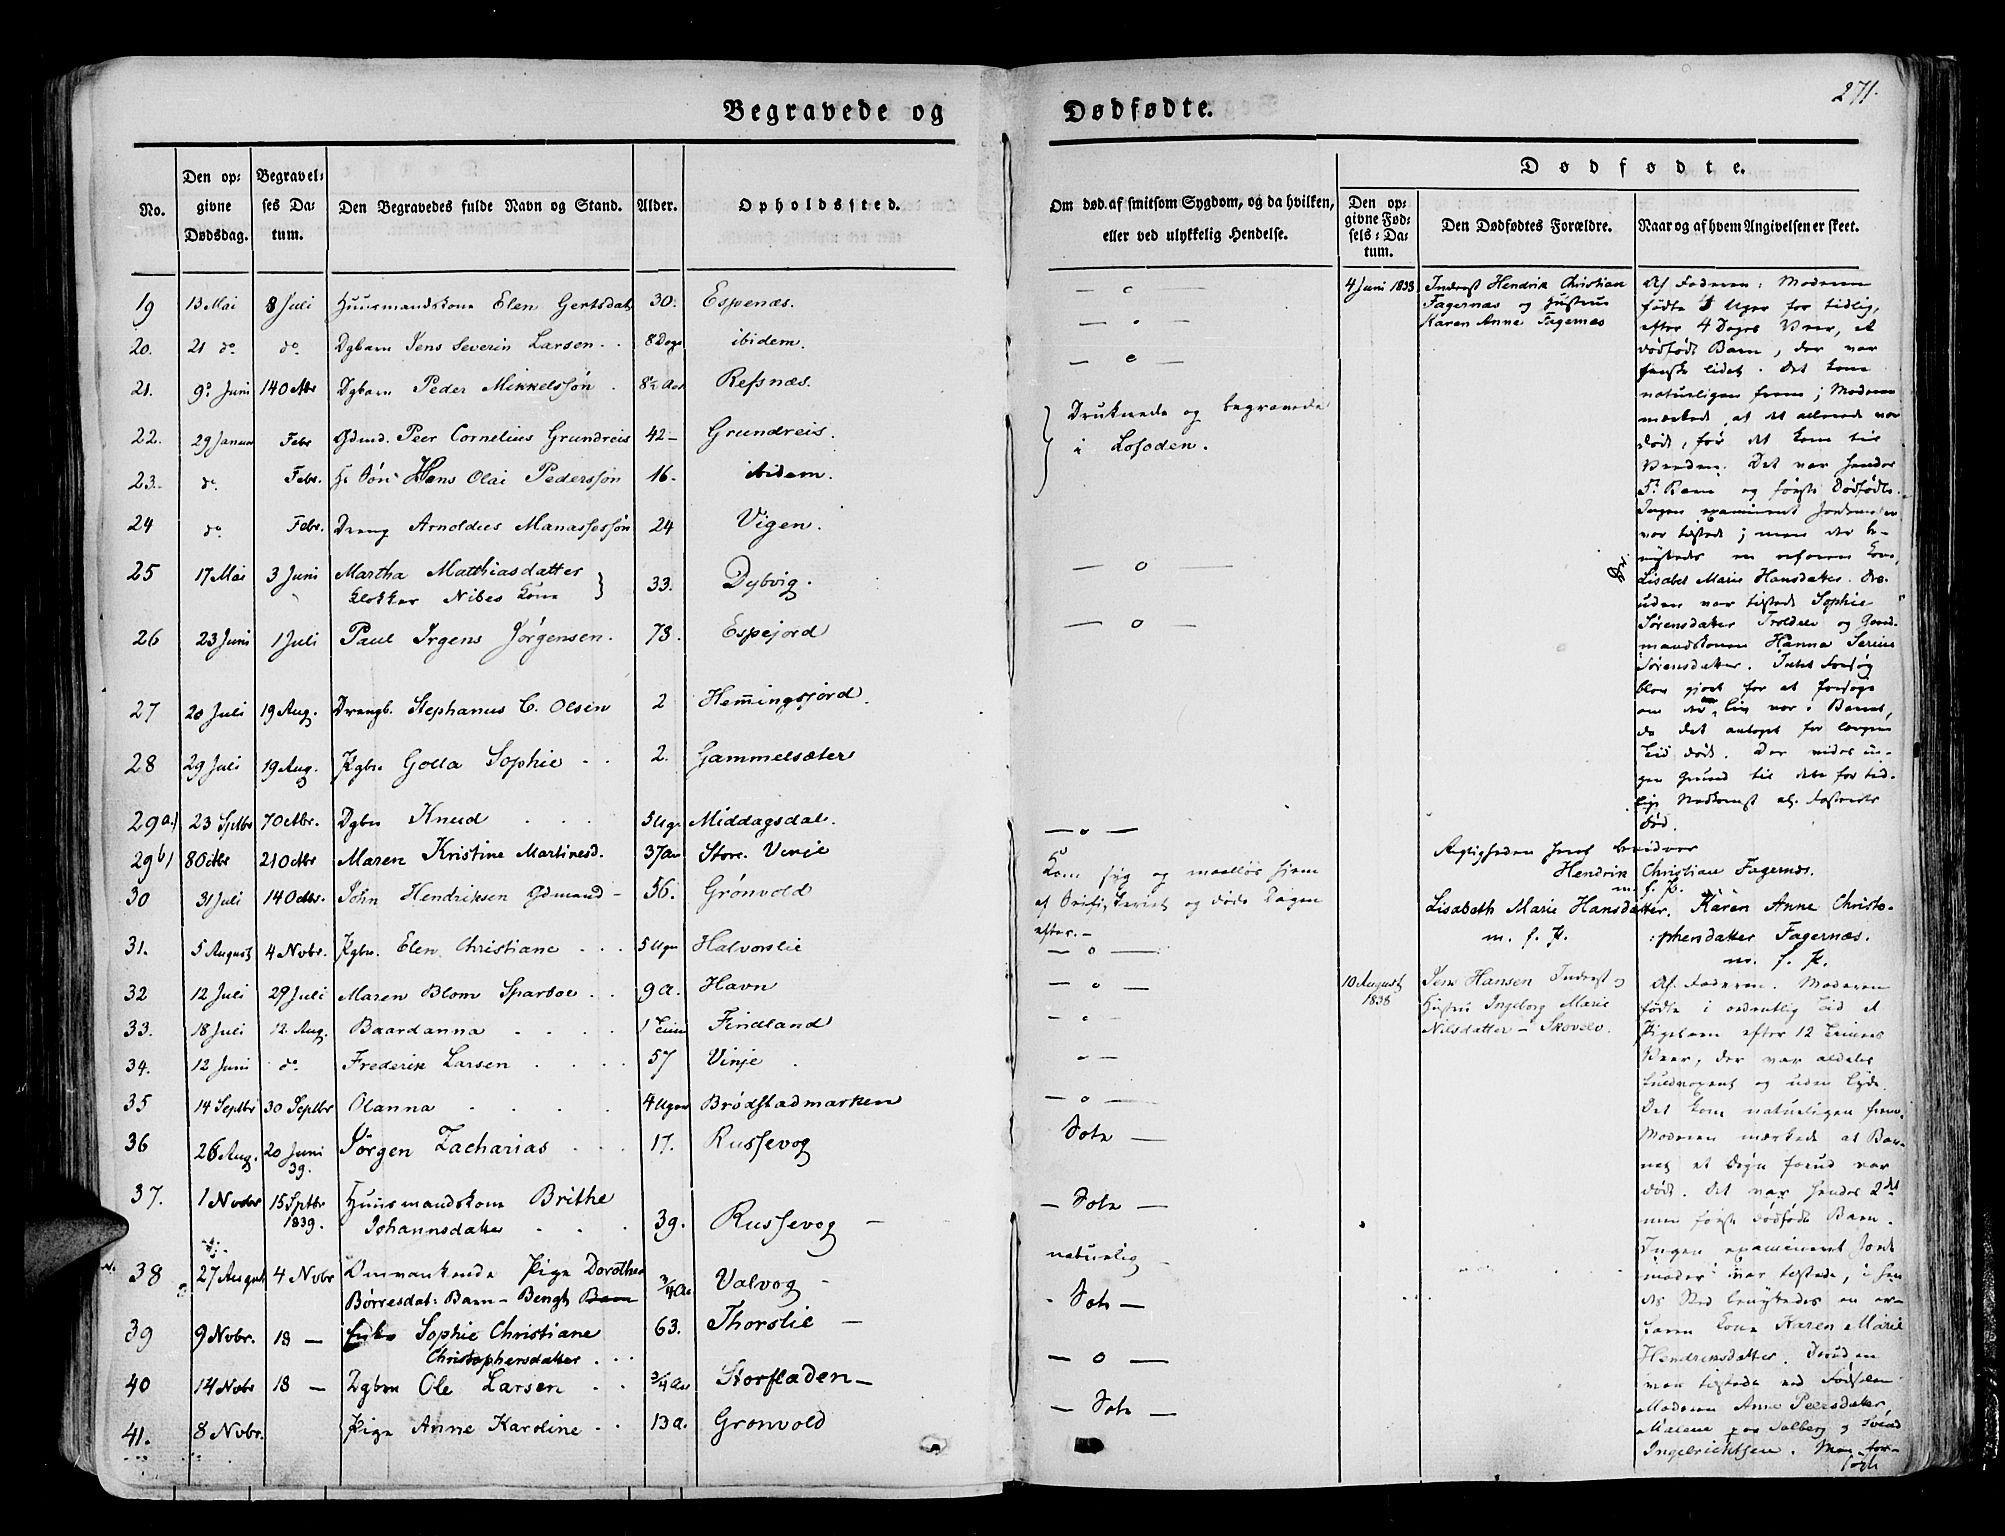 271.
Begravede og Dødfødte.
No.
Den opgivne Dødsdag.
Begravelses Datum.
Den Begravedes fulde Navn og Stand.
Alder.
Opholdssted.
Om død af smitsom Sygdom, og da hvilken, eller ved ulykkelig Hendelse.
Dødfødte.
Den opgivne Fødsels-Datum.
Den Dødfødtes Forældre.
Naar og af hvem Angivelsen er skeet.
19 13 Mai 8 Juli Huusmandskone Elen Gertsdat 30. Espenæs. — o —
20. 21 do do Dgbarn Jens Severin Larsen 8 Dage ibidem. — o —
21. 9de Juni 14 Octbr Dgbarn Peder Mikkelssøn 8½ Aar Refsnæs. — o —
22. 29 Januar Febr Gdmd. Peer Cornelius Grundreis 42 — Grundreis. Druknede og begravede
23. do Febr. Hs Søn Hans Olai Pederssøn 16. ibidem. i Lofoden.
24 do Febr. Dreng Arnoldus Manassessøn 24 Vigen.
25 17 Mai 3 Juni Martha Matthiasdatter 33. Dybvig. — o —
Klokker Nibes Kone
26 23 Juni 1 Juli Paul Irgens Jørgensen. 73. Espejord — o —
27 20 Juli 19 Aug. Drengb. Stephanus C. Olsen 2 Hemingsjord
28 29 Juli 19 Aug. Pgbn Golla Sophie 2. Gammelsæter
29 a) 23 Sptbr 7 Octbr. Dgbn Knud 5 Ugr Middagsdal. — o —
29 b) 8 Octbr 21 Octbr Maren Kristine Martinesd. 37 Aar Store Vinje
30 31 Juli 14 Octbr. John Hendriksen Gdmand — 56. Grönvold
Kom syg og maalløs hjem
af Örifiskeriet og døde Dagen
efter. —
31. 5 August 4 Novbr. Pgbn. Elen Christiane 5 Ugr Halvorslie — o —
32 12 Juli 29 Juli Maren Blom Sparboe 9 a. Havn — o —
33. 18 Juli 12. Aug. Baardanna 1 Time Findland — o —
34. 12 Juni do Frederik Larsen 57 Vinje — o —
35 14 Septbr 30 Septbr Olanna 4 Uger Brödstadmarken — o —
36 26 Aug. 20 Juni 39. Jørgen Zacharias 17. Russevog Sot —
37. 1 Novbr 15 Sptbr 1839. Huusmandskone Brithe
Johannsdatter 39. Russevog — — Sot —
38 27 August 4 Novbr Omvankende Pige Dorothea naturlig
Børresdat: Barn — Bengt Barn ¾ Aar Valvog — - Sot —
39 9 Novbr. 18 — Enke Sophie Christiane 63. Thorslie —
Christophersdatter — o —
40 14 Novbr 18 — Dgbn Ole Larsen ¾ Aar Storfladen — — Sot —
41. 8 Novbr. Pige Anne Karoline 13 a. Gronvold
4 Juni 1838
Inderst Hendrik Christian
Fagernæs og Hustrue
Karen Anne Fagernæs
Af Faderen: Moderen
fødte 4 Uger for tidlig,
efter 4 Dages Veer, et
dødfødt Barn, der var
ganske lidet. Det kom
naturligen frem; Moderen
mærkede, at det allerede var
dødt, før det kom til
Verden. Det var hendes
5te Barn og første Dødfødte.
Ingen examineret Jordemoder
var tilstede; men der be-
nyttedes en erfaren Kone,
Lisabet Marie Hansdatter. Des-
uden var tilstede Sophie
Sørensdatter Troldele og Gaard-
mandskonen Hanna Serine
Sørensdatter. Intet Forsøg
blev gjort for at forsøge
om der liv var i Barnet,
da det antoges for længere
Tid dødt. Der vides in-
gen Grund til dets for tid-
lige Nedkomst el. Fosterets
Død.
Rigtigheden heraf bevidner
Hendrik Christian Fagernæs.
m. f. P.
Lisabeth Marie Hansdatter. Karen Anne Christo-
m. f. P. phersdatter Fagernæs.
m. f. P.
10 August 1838
Jens Hansen Inderst og
Hustru Ingeborg Marie
Nilsdatter — Skovelv.
Af Faderen. Moderen
fødte i ordentlig Tid et
Pigebarn efter 12 Timers
Veer, der var aldeles
fuldvoxent og uden Lyde.
Det kom naturligen frem.
Moderen mærkede at Bar-
net et Døgn forud var
dødt. Det var hendes 2det
men første dødfødte Barn.
Ingen examineret Jord-
moder var tilstede, i hen-
des Sted benyttedes en er-
faren Kone Karen Marie
Hendriksdatter. Desuden
var tilstede ved Fødselen
Moderen Anne Peersdatter,
Malene paa Solberg og Svend
Ingebrichtsen. Man for-
søgte